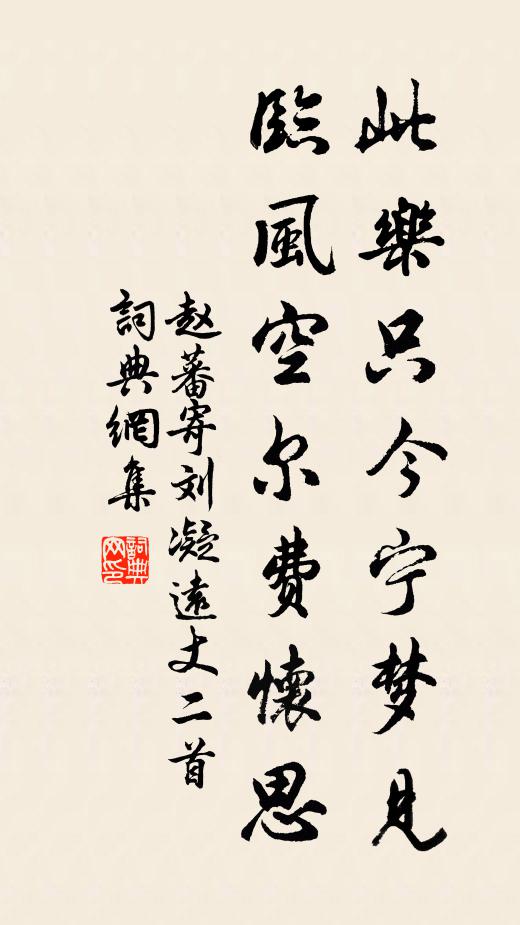 此樂只今宁梦見
臨風空尔費懷思
赵蕃寄刘凝遠丈二首
詞典網集
詞典网印